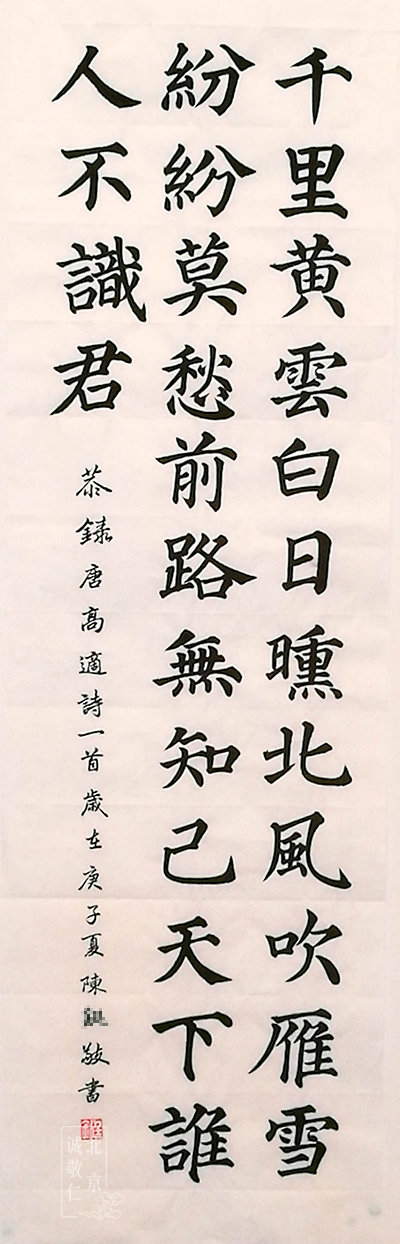 千里黄雲白日曛北風吹雁雪
紛紛莫愁前路無知己天下誰
人不識君
恭録唐高適詩一首歲在庚子夏陳敬書
北京
诚敬仁